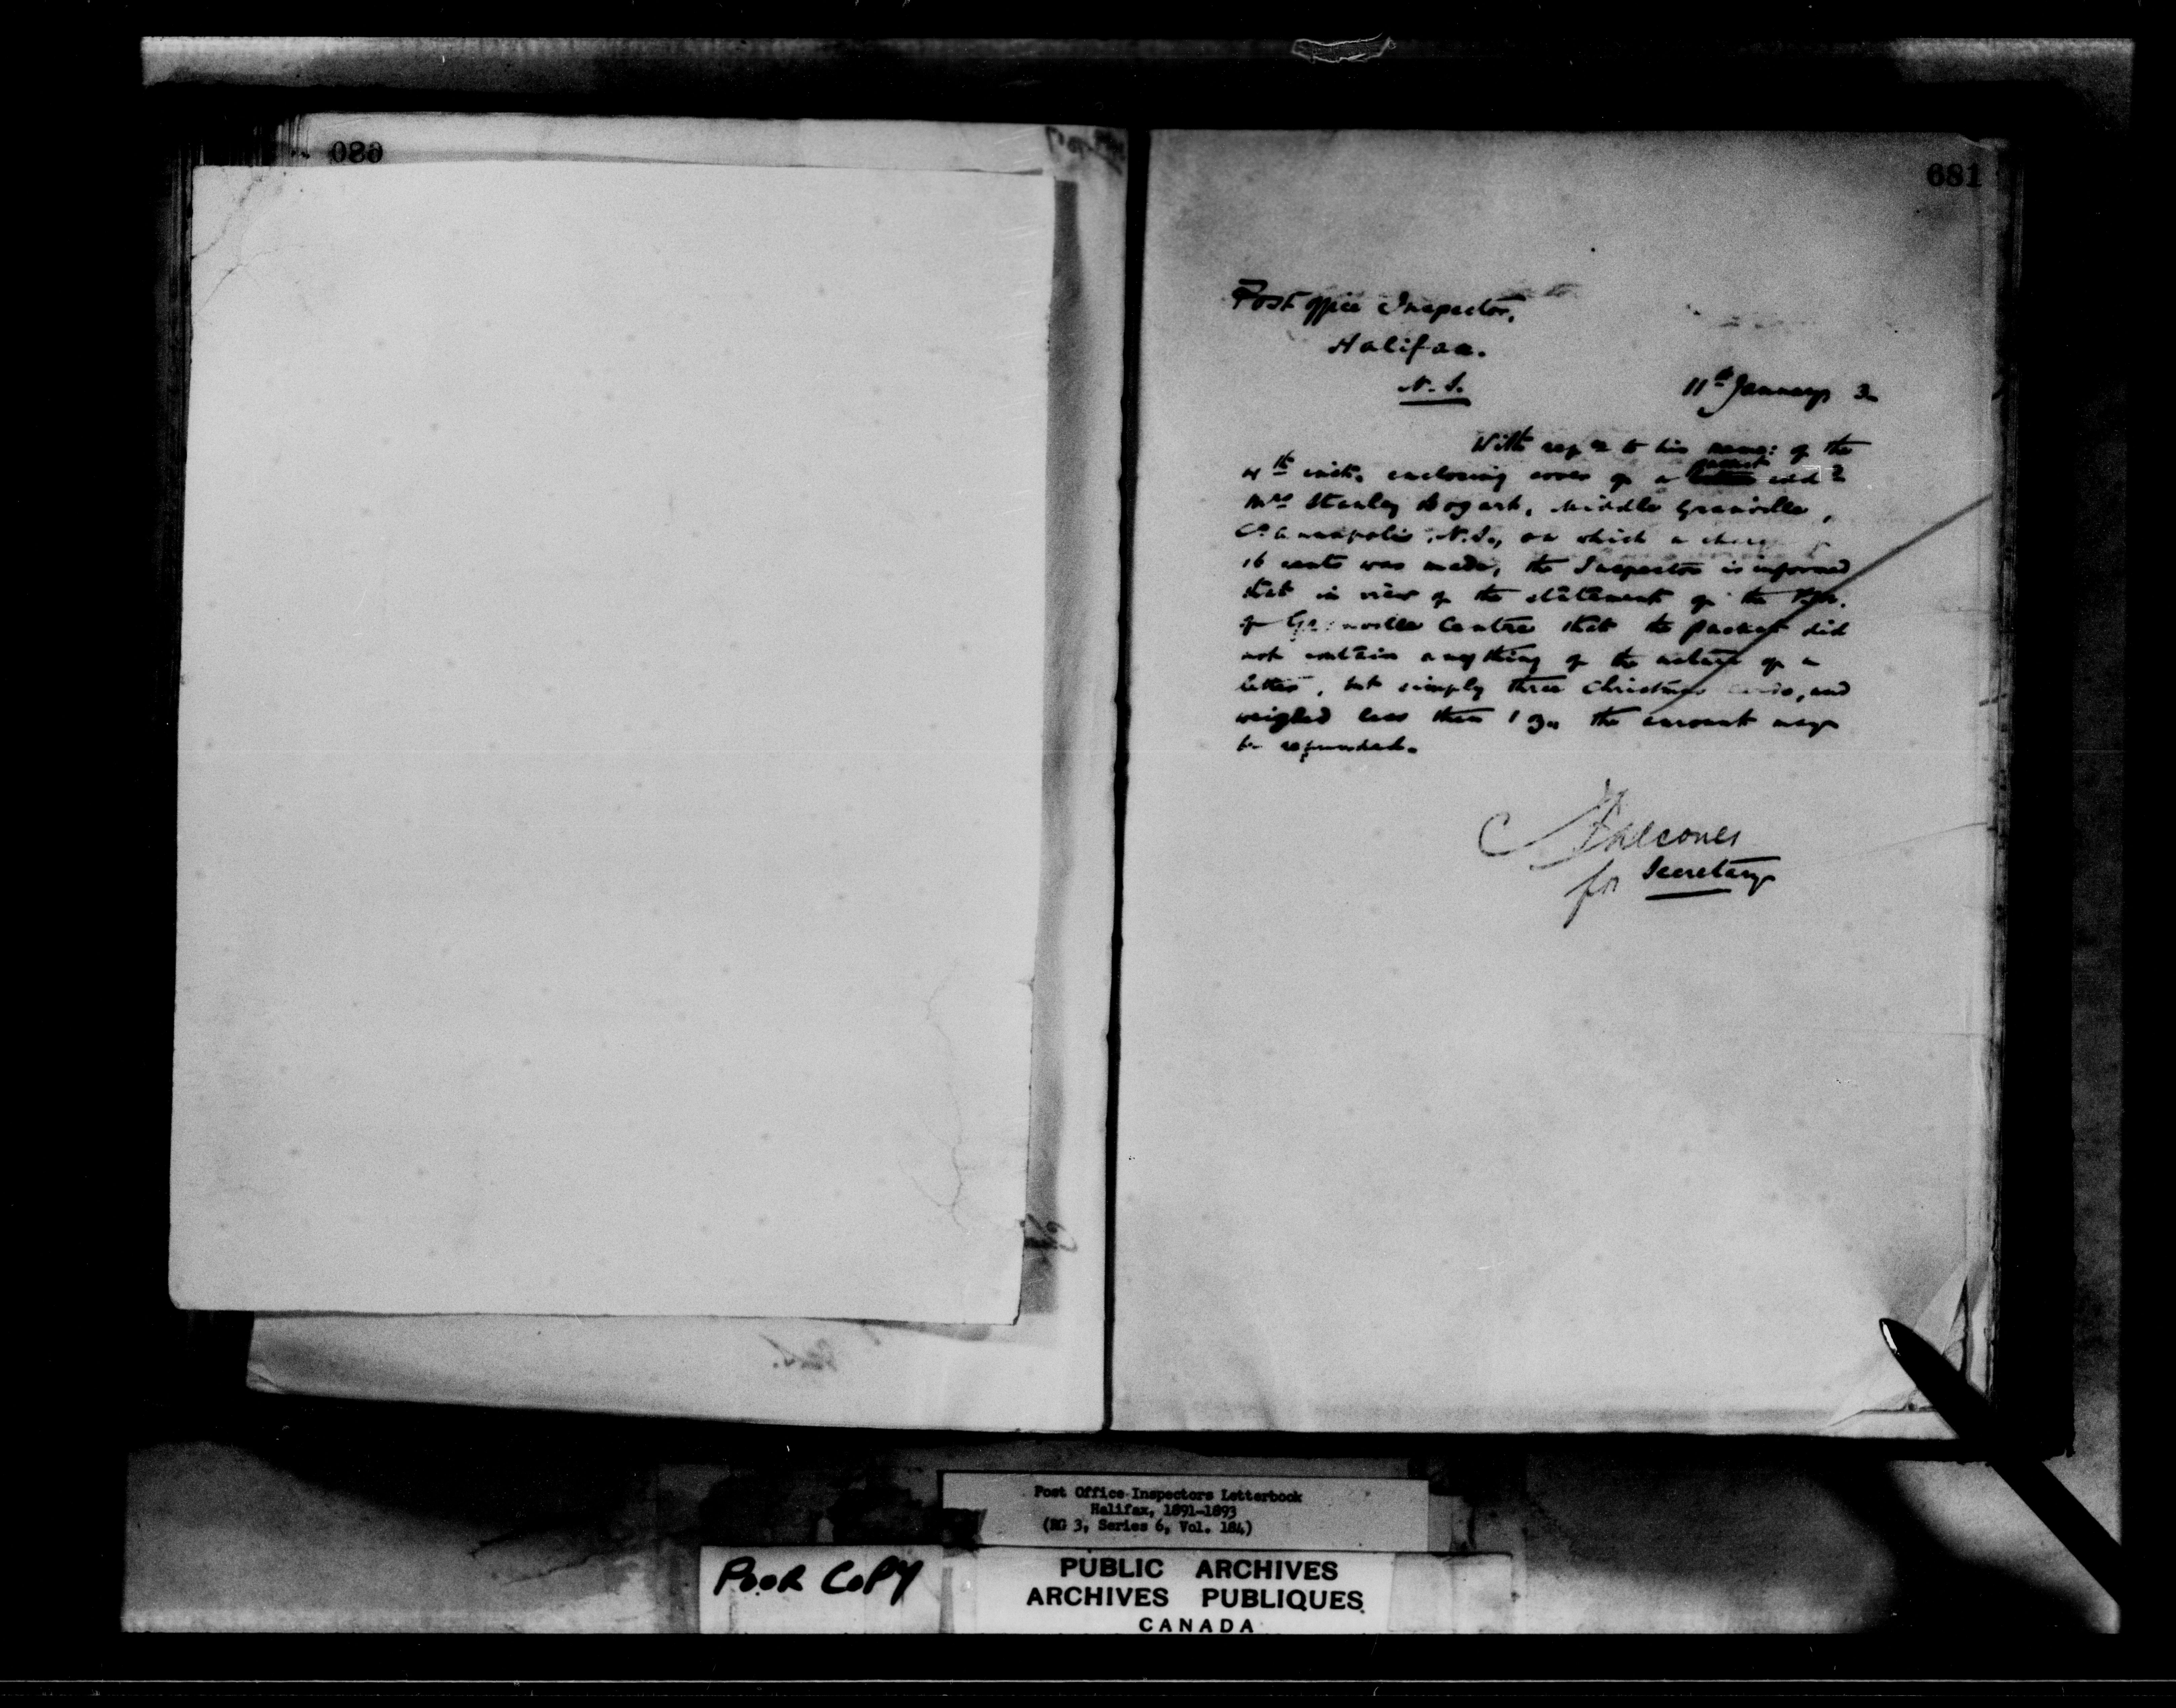 080
681
Post Office Inspector,
Halifax.
N.S.
11th January 3
With refce to his memo: of the
4th inst. enclosing cover of a packet letter add
Mrs Stanley Bogart, Middle Granville,
Co Annapolis, N.S., on which a charge
16 cents was made, the Inspector is informed
that in view of the statement of the P.M.
of Granville Centre that the packet did
not contain anything of the nature of a
letter, but simply three Christmas cards, and
weighed less than 1 oz. the amount may
be refunded.
for Secretary
Post Office Inspectors Letterbook
Halifax, 1891-1893
(RG 3, Series 6, Vol. 184)
POOR COPY
PUBLIC ARCHIVES
ARCHIVES PUBLIQUES
CANADA